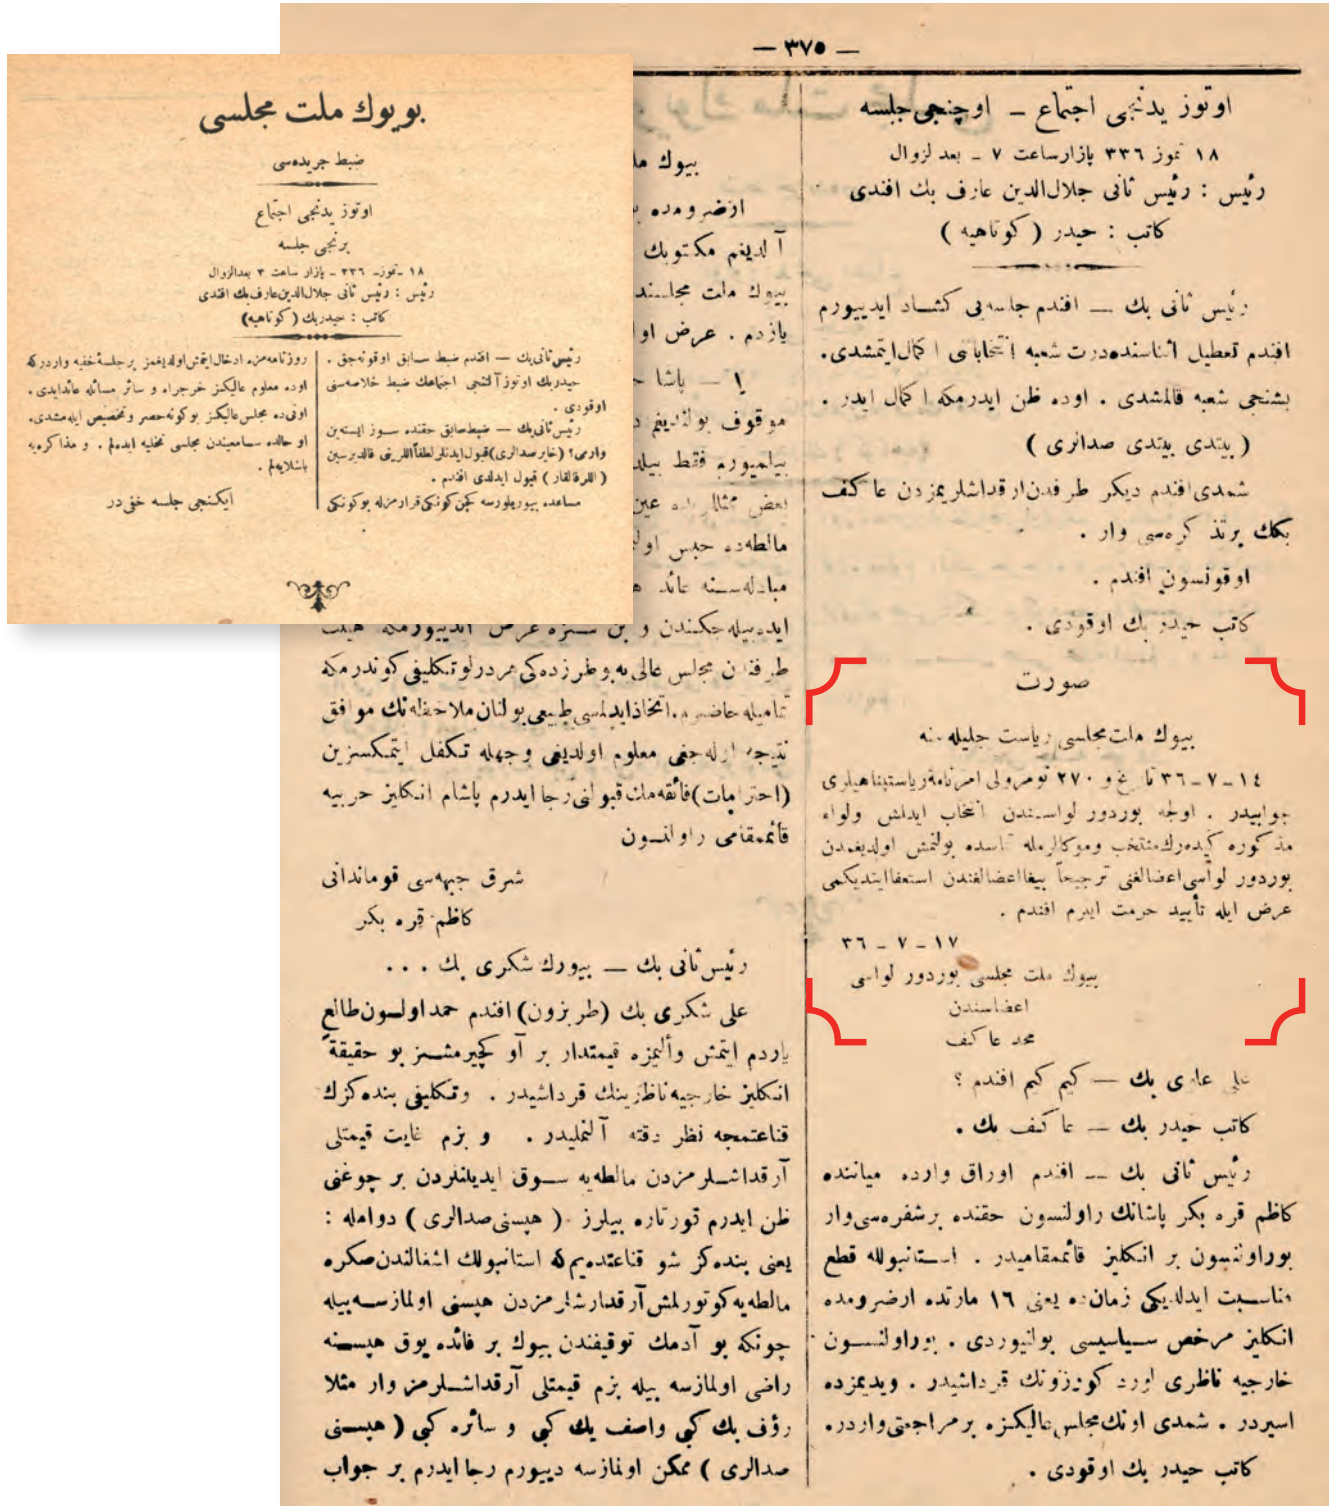 — ٣٧٥ —
بويوك ملت مجلسى
ضبط جريده‌سى
اوتوز يدنجى اجتماع
برنجى جلسه
١٨ ـ تموز ـ ٣٣٦ ـ پازار ساعت ٣ بعدالزوال
رئيس : رئيس ثانى جلال‌الدين عارف بك افندى
كاتب : حيدر بك ( كوتاهيه )
رئيس ثانى بك — افندم ضبط سابق اوقونه‌جق .
حيدر بك اوتوز آلتنجى اجتماعك ضبط خلاصه‌سنى
اوقودى .
رئيس ثانى بك — ضبط سابق حقنده سوز ايسته‌ين
وارمى؟ (خاير صدالرى) قبول ايدنلر لطفاً اللرينى قالديرسين
( اللر قالقار ) قبول ايدلدى افندم .
مساعده بيوريلورسه كچن كونكى قرارمزله بوكونكى
روزنامه‌مزه ادخال ايتمش اولديغمز بر جلسۀ خفيه واردركه
اوده معلوم عاليكز خرجراه و سائر مسائله عائد ايدى .
اونى ده مجلس عاليكز بوكونه حصر و تخصيص ايله‌مشدى .
او حالده سامعيندن مجلسى تخليه ايده‌لم . و مذاكره‌يه
باشلايه‌لم .
ايكنجى جلسه خفى در
اوتوز يدنجى اجتماع ـ اوچنجى جلسه
١٨ تموز ٣٣٦ پازار ساعت ٧ ـ بعد لزوال
رئيس : رئيس ثانى جلال‌الدين عارف بك افندى
كاتب : حيدر ( كوتاهيه )
رئيس ثانى بك — افندم جلسه‌يى كشاد ايدييورم
افندم تعطيل اثناسنده درت شعبه انتخاباتنى اكمال ايتمشدى.
بشنجى شعبه قالمشدى . اوده ظن ايدرمكه اكمال ايدر .
( بيتدى بيتدى صدالرى )
شمدى افندم ديكر طرفدن ارقداشلريمزدن عاكف
بكك بر تذكره‌سى وار .
اوقونسون افندم .
كاتب حيدر بك اوقودى .
صورت
بيوك ملت مجلسى رياست جليله‌سنه
١٤ ـ ٧ ـ ٣٦ تاريخ و ٢٧٠ نومرولى امرنامۀ رياستپناهيلرى
جوابيدر . اولجه بوردور لواسندن انتخاب ايدلمش ولواء
مذكوره كيده‌رك منتخب وموكللرمله تماسده بولنمش اولديغمدن
بوردور لواسى اعضالغنى ترجيحاً بيغا اعضالغندن استعفا ايتديكمى
عرض ايله تأييد حرمت ايدرم افندم .
١٧ ـ ٧ ـ ٣٦
بيوك ملت مجلسى بوردور لواسى
اعضاسندن
محمد عاكف
على بك — كيم كيم افندم ؟
كاتب حيدر بك — عاكف بك .
رئيس ثانى بك — افندم اوراق وارده مياننده
كاظم قره بكر پاشانك راولنسون حقنده بر شفره‌سى وار
بوراولنسون بر انكليز قائممقاميدر . استانبولله قطع
مناسبت ايدلديكى زمانده يعنى ١٦ مارتده ارضرومده
انكليز مرخص سياسيسى بولنيوردى . بوراولنسون
خارجيه ناظرى لورد كورزونك قرداشيدر . ويديمزده
اسيردر . شمدى اونك مجلس عاليكزه بر مراجعتى واردر.
كاتب حيدر بك اوقودى .
بيوك
ارضرومده
آلديغم مكتوبك
بيوك ملت مجلسنده
يازدم . عرض
١ — پاشا
موقوف بولنديغم
بيلميورم فقط
بعض
مالطه‌ده حبس
مبادله‌سنه عائد
ايده‌بيله‌جكندن و بن سزه عرض ايدييورمكه هيئت
طرفندن مجلس عالى‌يه بو طرزده‌كى هر درلو تكليفى كوندرمكه
تماميله حاضرم. اتخاذ ايدلمسى طبيعى بولنان ملاحظه‌نك موافق
نتيجه اوله‌جغى معلوم اولديغى وجهله تكفل ايتمكسزين
(احترامات) فائقه‌مك قبولنى رجا ايدرم پاشام انكليز حربيه
قائممقامى راولنسون
شرق جبهه‌سى قوماندانى
كاظم قره بكر
رئيس ثانى بك — بيورك شكرى بك ...
على شكرى بك (طربزون) افندم حمد اولسون طالع
ياردم ايتمش وأليمزه قيمتدار بر آو كچيرمشز بو حقيقةً
انكليز خارجيه ناظرينك قرداشيدر . وتكليفى بنده‌كزك
قناعتمجه نظر دقته آلنمليدر . و بزم غايت قيمتلى
آرقداشلرمزدن مالطه‌يه سوق ايديلنلردن بر چوغنى
ظن ايدرم قورتاره بيلرز ( هپسنى صدالرى ) دوامله :
يعنى بنده‌كز شو قناعتده‌يم كه استانبولك اشغالندن صكره
مالطه‌يه كوتورلمش آرقداشلرمزدن هپسنى اولمازسه بيله
چونكه بو آدمك توقيفندن بيوك بر فائده يوق هپسنه
راضى اولمازسه بيله بزم قيمتلى آرقداشلرمز وار مثلا
رؤف بك كبى واصف بك كبى و سائره كبى ( هپسنى
صدالرى ) ممكن اولمازسه دييورم رجا ايدرم بر جواب